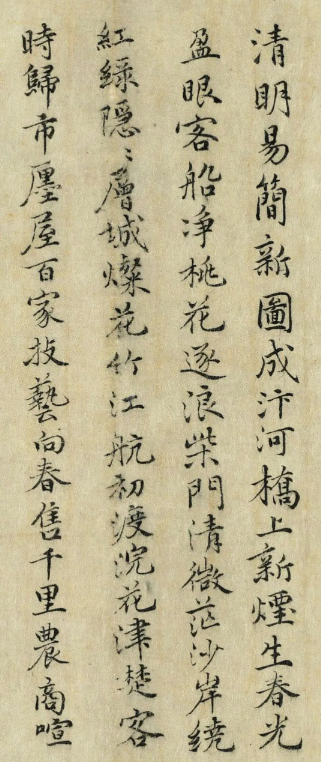 清明易簡新圖成汴河橋上新煙生春光
盈眼客船净桃花逐浪柴門清微茫沙岸繞
紅綠隱〻層城燦花竹江航初渡浣花津楚客
時歸市廛屋百家技藝向春售千里農商喧